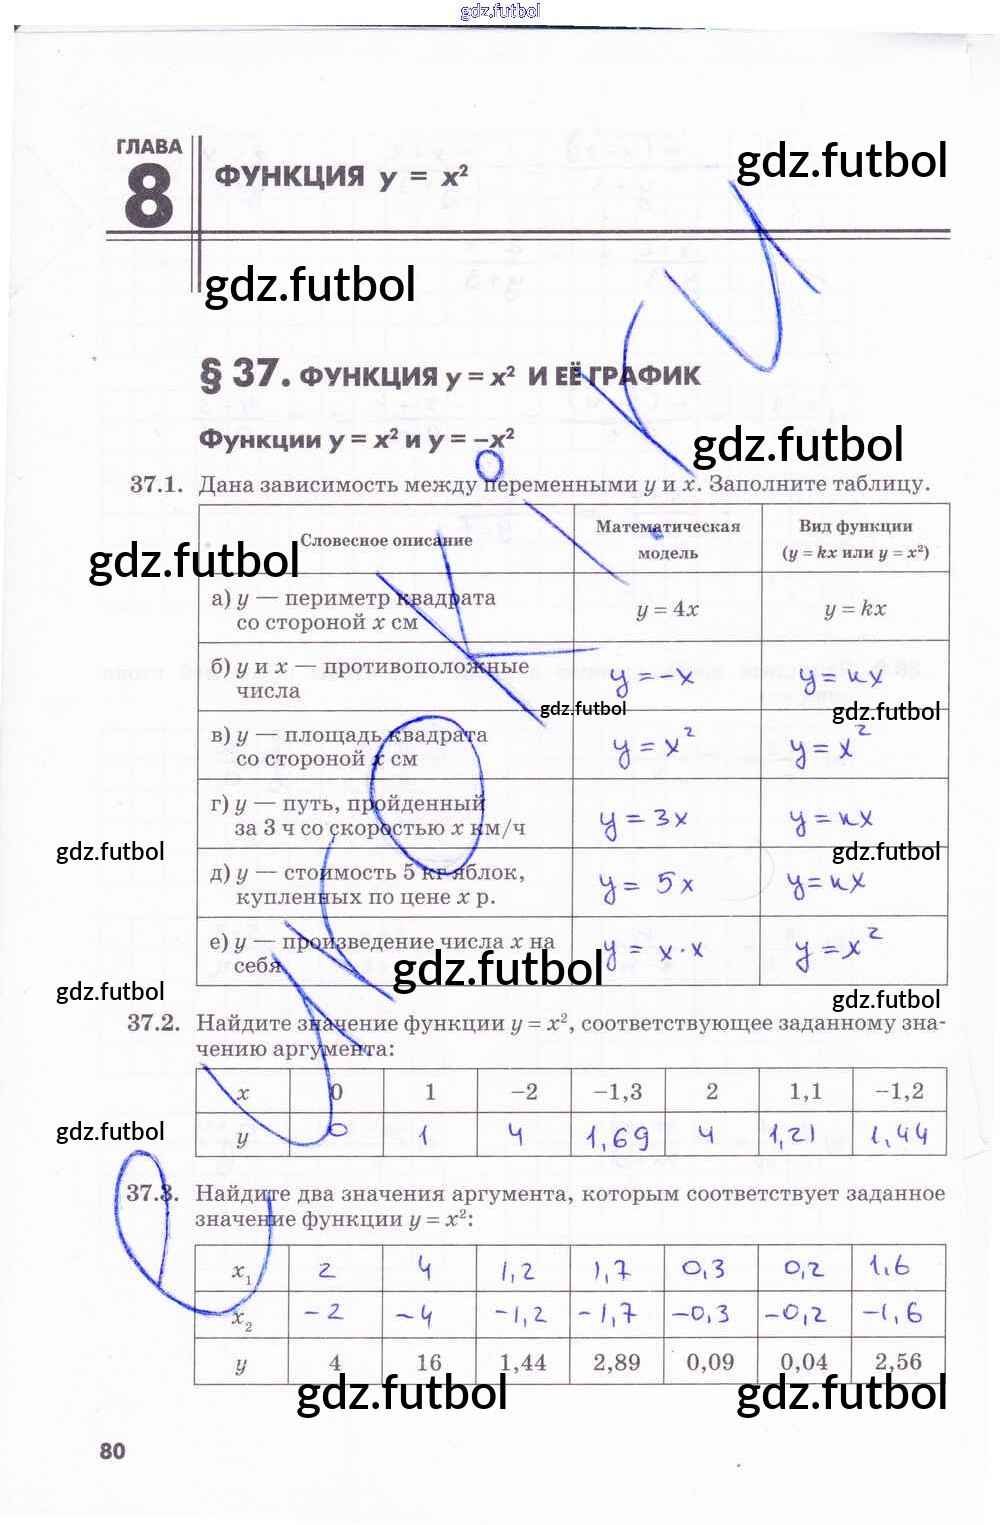 gdz.futbol
ГЛАВА
8
ФУНКЦИЯ y = x²
gdz.futbol
gdz.futbol
§ 37. ФУНКЦИЯ y = x² И ЕЁ ГРАФИК
Функции y = x² и y = –x²
gdz.futbol
37.1. Дана зависимость между переменными y и x. Заполните таблицу.
Словесное описание
Математическая модель
Вид функции (y = kx или y = x²)
gdz.futbol
а) y — периметр квадрата
со стороной x см
y = 4x
y = kx
б) y и x — противоположные
числа
y = -x
y = kx
gdz.futbol
gdz.futbol
в) y — площадь квадрата
со стороной x см
y = x²
y = x²
г) y — путь, пройденный
за 3 ч со скоростью x км/ч
y = 3x
y = kx
gdz.futbol
gdz.futbol
д) y — стоимость 5 кг яблок,
купленных по цене x р.
y = 5x
y = kx
е) y — произведение числа x на
себя
y = x·x
y = x²
gdz.futbol
gdz.futbol
gdz.futbol
37.2. Найдите значение функции y = x², соответствующее заданному зна-
чению аргумента:
x 0 1 –2 –1,3 2 1,1 –1,2
y 0 1 4 1,69 4 1,21 1,44
gdz.futbol
37.3. Найдите два значения аргумента, которым соответствует заданное
значение функции y = x²:
x₁ 2 4 1,2 1,7 0,3 0,2 1,6
x₂ -2 -4 -1,2 -1,7 -0,3 -0,2 -1,6
y 4 16 1,44 2,89 0,09 0,04 2,56
gdz.futbol
gdz.futbol
80